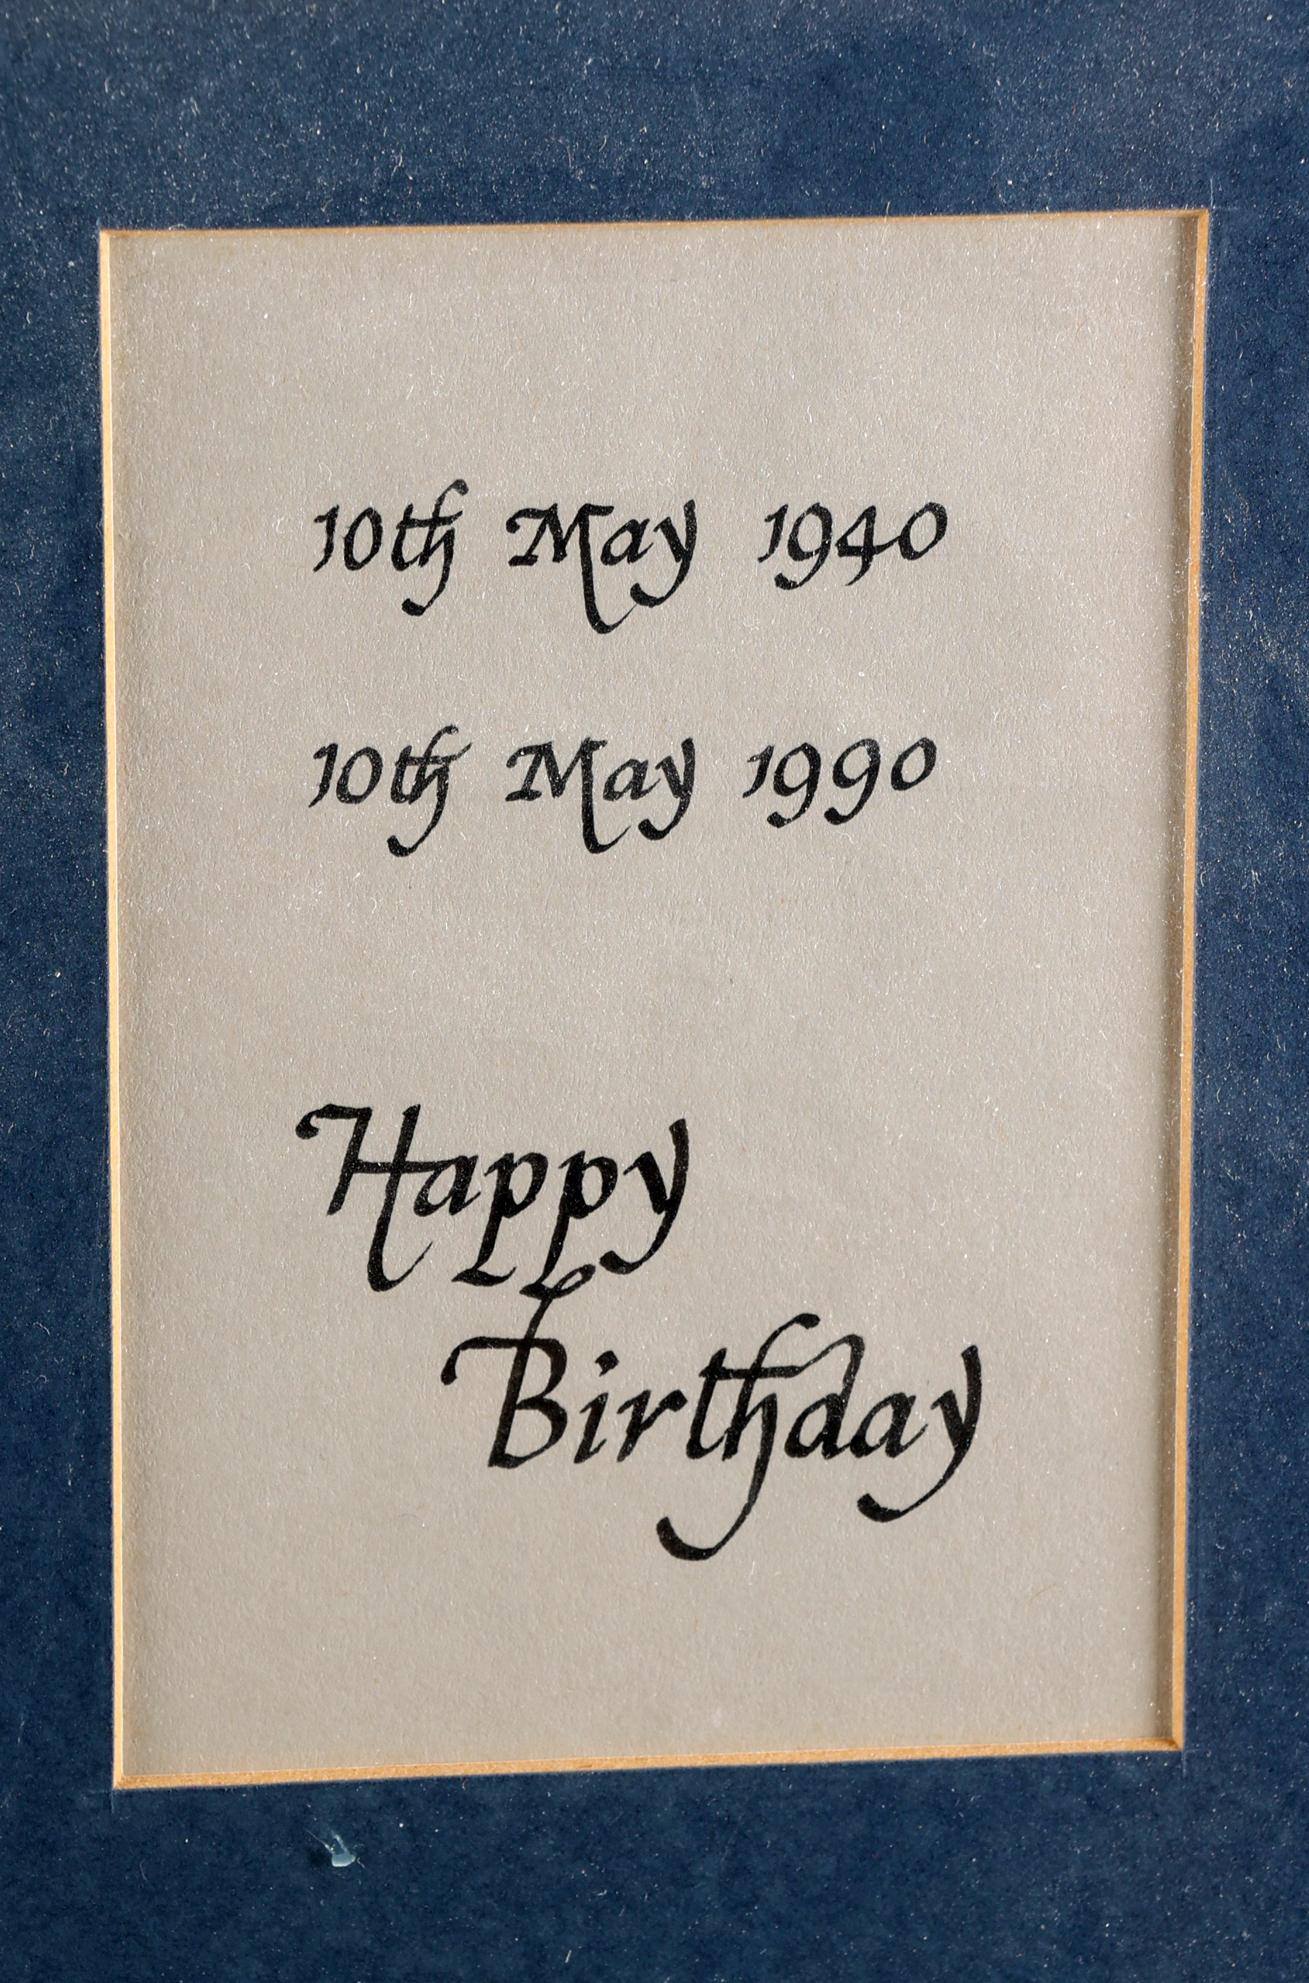 10th May 1940
10th May 1990
Happy
Birthday